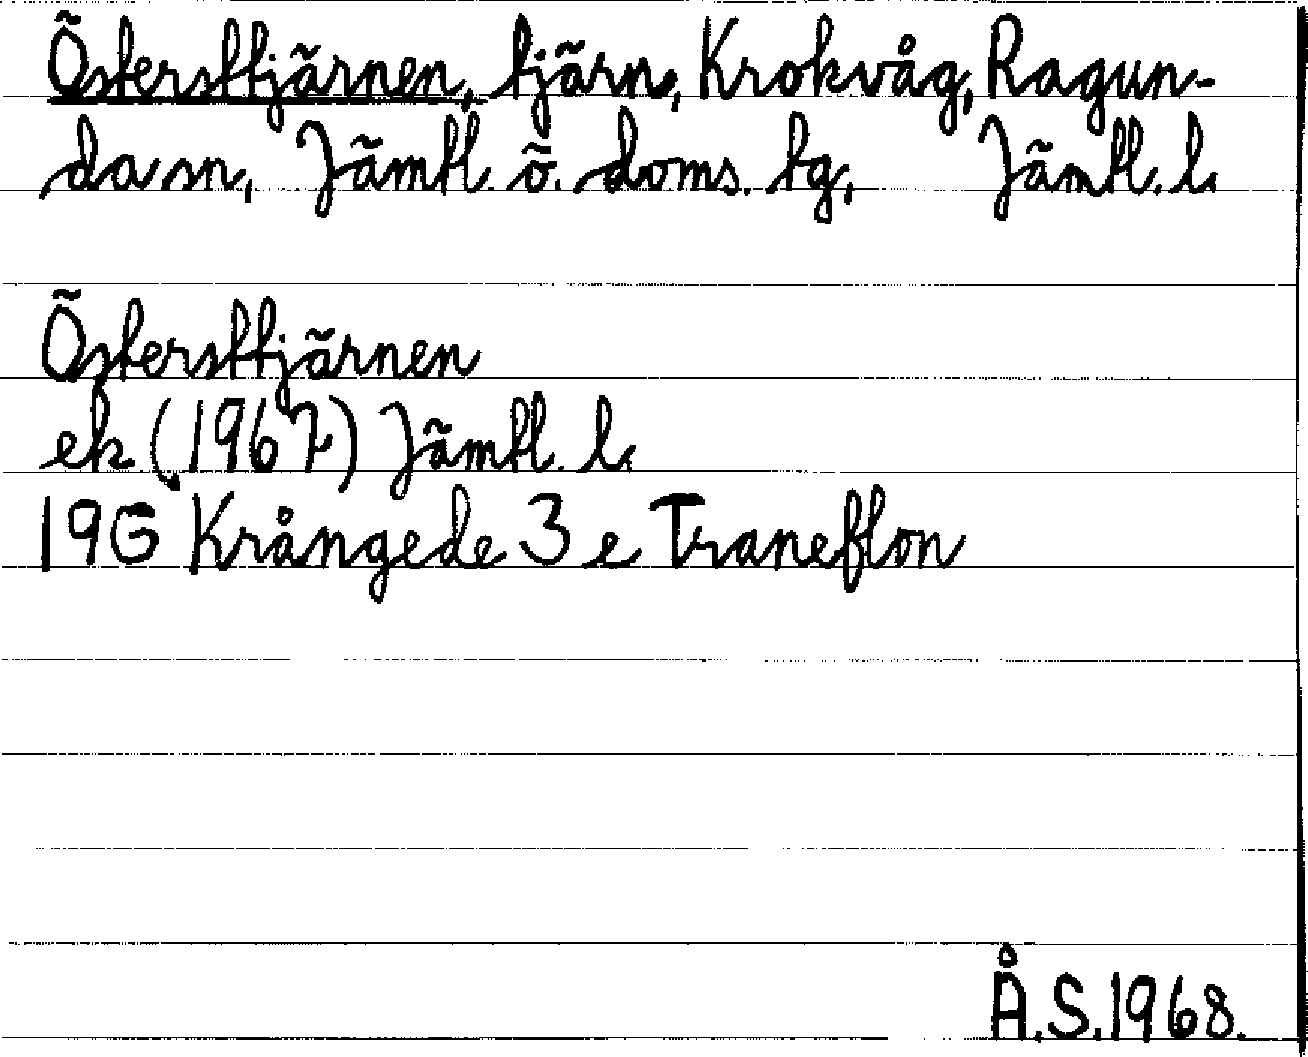 Östersttjärnen, tjärn, Krokvåg, Ragun-
da sn, Jämtl. ö. doms. tg, Jämtl. l.
Östersttjärnen
ek (1967) Jämtl. l.
19G Krångede 3 e Traneflon
Å.S.1968.